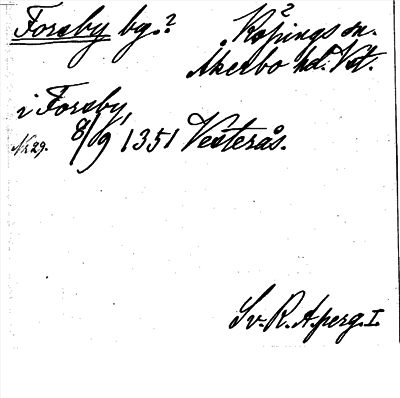 Forsby bg.? Köpings sn.
Åkerbo hd. Vstm.
i Forsby,
Nr 29. 8/9 1351 Vesterås.
Sv. R. A. perg. I.